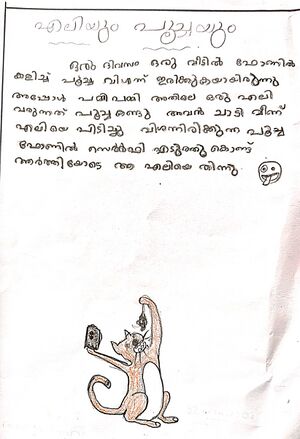 എലിയും പൂച്ചയും
ഒരു ദിവസം ഒരു വീടിൽ ഫോണിൽ
കളിച്ച് പൂച്ച വിശന്ന് ഇരിക്കുകയായിരുന്നു
അപ്പോൾ പമ്മി പമ്മി അതിലെ ഒരു എലി
വരുന്നത് പൂച്ച കണ്ടു അവൻ ചാടി വീണ്
എലിയെ പിടിച്ചു വിശന്നിരിക്കുന്ന പൂച്ച
ഫോണിൽ സെൽഫി എടുത്തു കൊണ്ട്
ആർത്തിയോടെ ആ എലിയെ തിന്നു